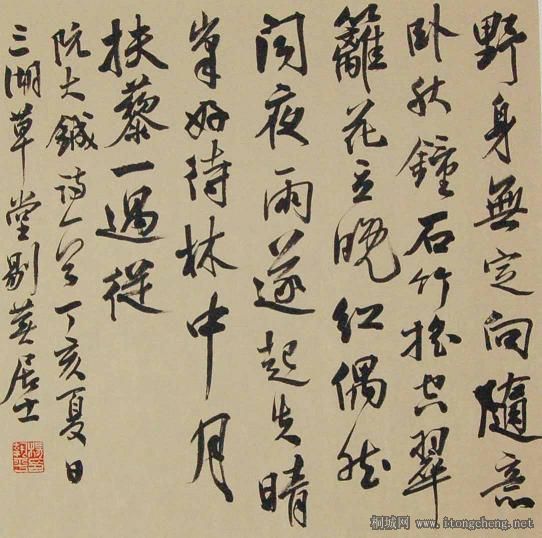 野身無定向隨意
卧秋鐘石竹搖空翠
籬花立晚紅偶然
聞夜雨遂起失晴
峯好待林中月
扶藜一過從
阮大鋮詩一首丁亥夏日
三湖草堂居士
桐城网 www.itongcheng.net